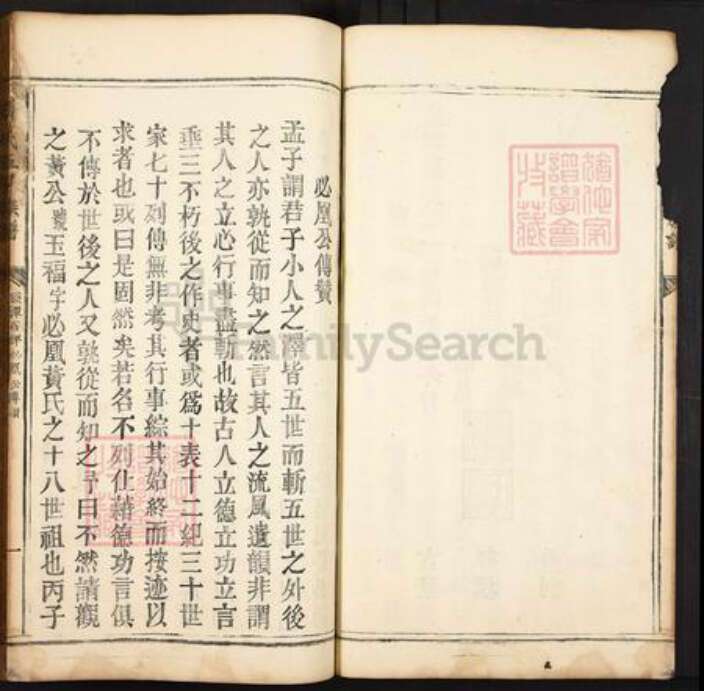 必凰公傳贊
孟子謂君子小人之澤皆五世而斬五世之外後
之人亦孰從而知之然言其人之流風遺韻非謂
其人之立心行事盡斬也故古人立德立功立言
垂三不朽後之作史者或爲十表十二紀三十世
家七十列傳無非考其行事綜其始終而按迹以
求者也或曰是固然矣若名不列仕藉德功言俱
不傳於世後之人又孰從而知之予曰不然請觀
之黃公號玉福字必凰黃氏之十八世祖也丙子
必凰公傳贊
一
FamilySearch
譜學會